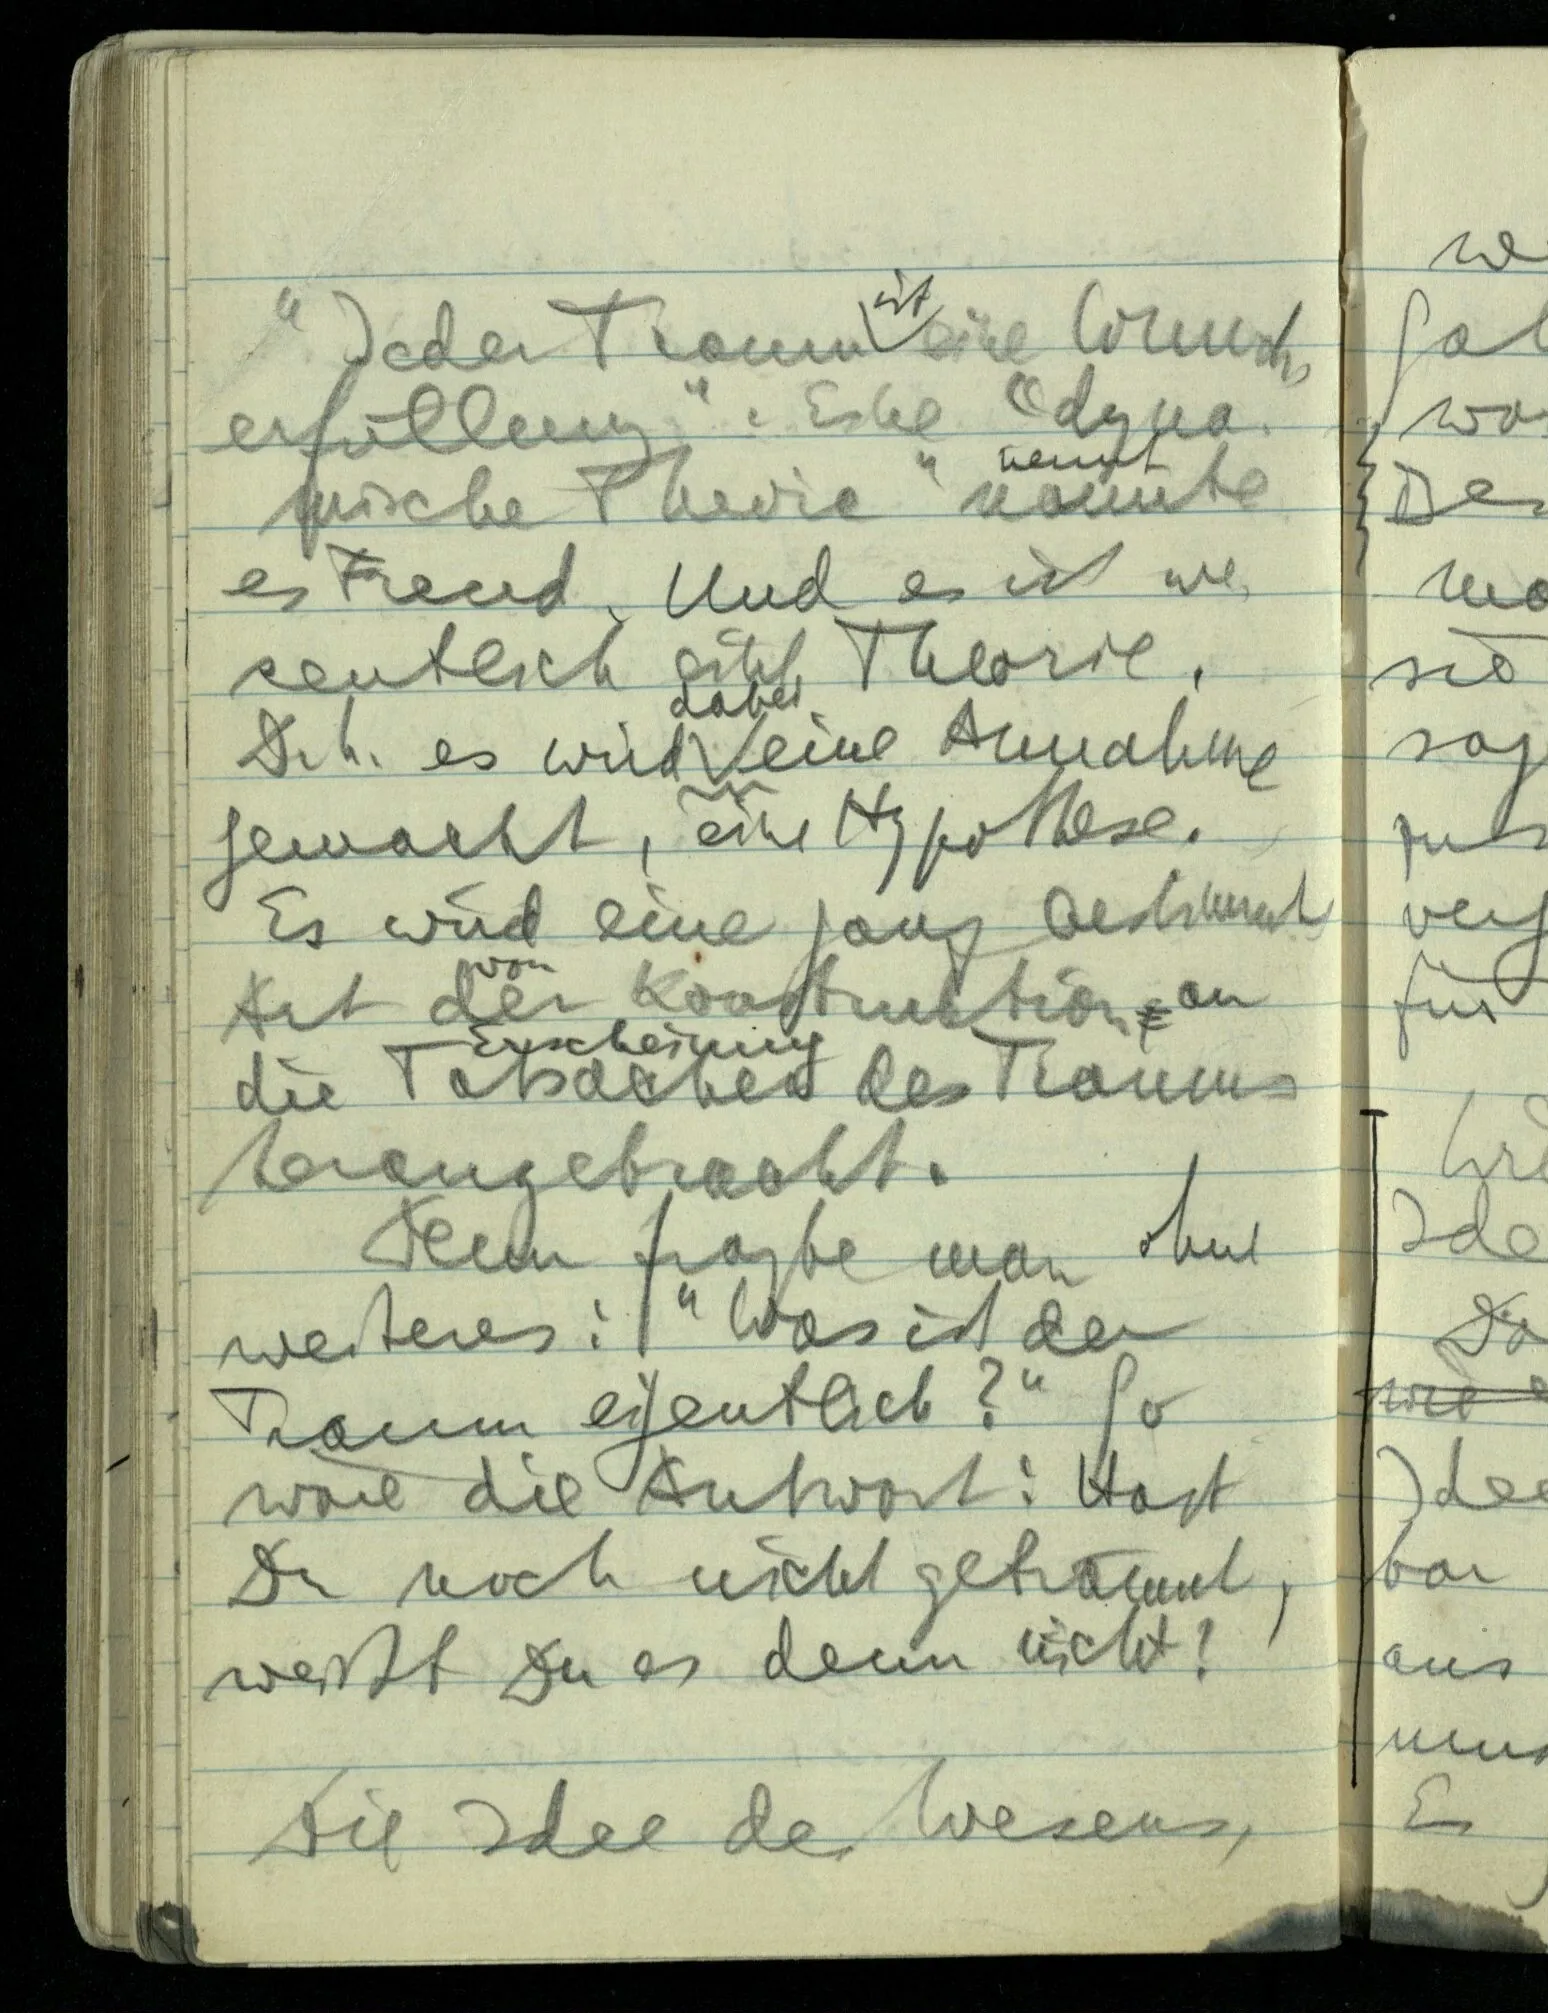 "Jeder Traum ist eine Wunsch-
erfüllung". Eine "dyna-
mische Theorie" nennt nannte
es Freud. Und es ist we-
sentlich eine Theorie.
D.h. es wird dabei eine Annahme
gemacht, eine Hypothese.
Es wird eine ganz bestimmte
Art von der Konstruktion an
die Erscheinung Tatsachen des Traums
herangebracht.
Denn fragte man ohne
weiteres: "Was ist der
Traum eigentlich?" So
wäre die Antwort: Hast
Du noch nicht geträumt,
weißt Du es denn nicht?
Die Idee des Wesens,